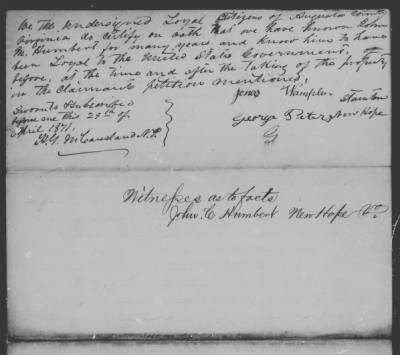 We the undersigned Loyal Citizens of Augusta County
Virginia do certify on oath that we have known John
M. Humbert for many years and know him to have
been Loyal to the United States Government,
before, at the time and after the taking of the property
in the claimants petition mentioned.
Sworn to & subscribed
before me this 29th of
April 1871.
James Wampler Staunton
George Peters New Hope
H. G. McCausland N.P.
Witnesses as to facts
John. C Humbert New Hope Va